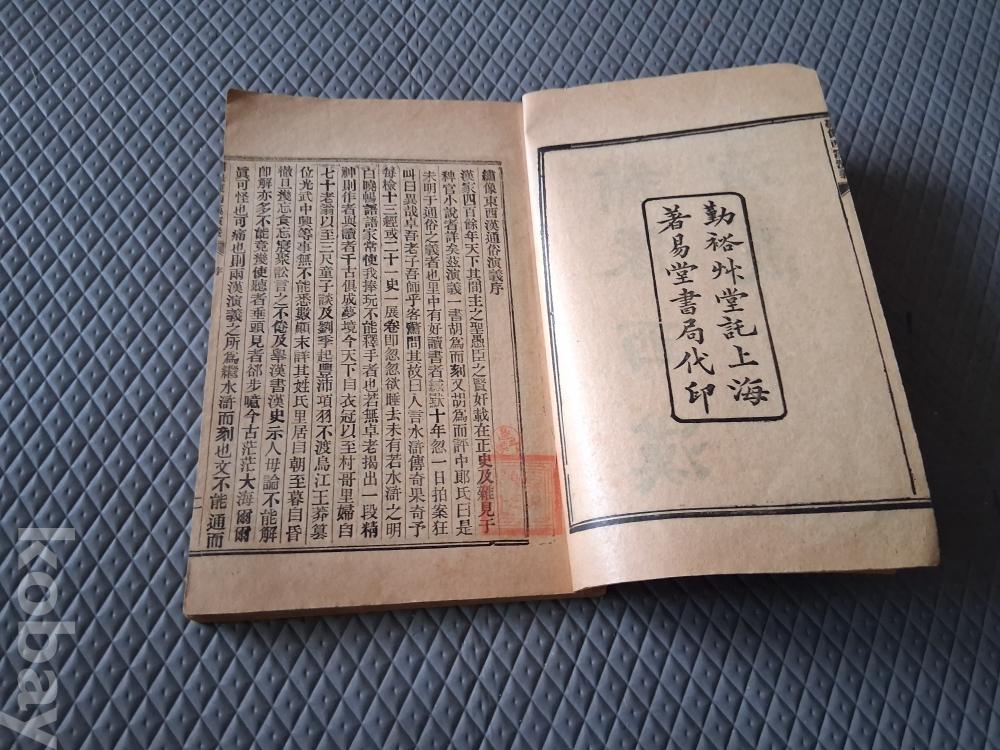 勤裕艸堂託上海
著易堂書局代印
繡像東西漢通俗演義序
漢家四百餘年天下其間主之聖愚臣之賢奸載在正史及雜見于
稗官小說者詳矣茲演義一書胡為而刻又胡為而評中郎氏曰是
未明于通俗之義者也里中有好讀書者緘默十年忽一日拍案狂
叫曰異哉卓吾老子吾師乎客驚問其故曰人言水滸傳奇果奇予
每檢十三經或二十一史一展卷即忽忽欲睡去未有若水滸之明
白曉暢語語家常使我捧玩不能釋手者也若無卓老揭出一段精
神則作者與讀者千古俱成夢境今天下自衣冠以至村哥里婦自
七十老翁以至三尺童子談及劉季起豐沛項羽不渡烏江王莽篡
位光武中興等事無不能悉數顛末詳其姓氏里居自朝至暮自昏
徹旦幾忘食忘寢聚訟言之不倦及舉漢書漢史示人毋論不能解
即解亦多不能竟幾使聽者垂頭見者卻步噫今古茫茫大海爾爾
眞可怪也可痛也則兩漢演義之所為繼水滸而刻也文不能通而
kobay